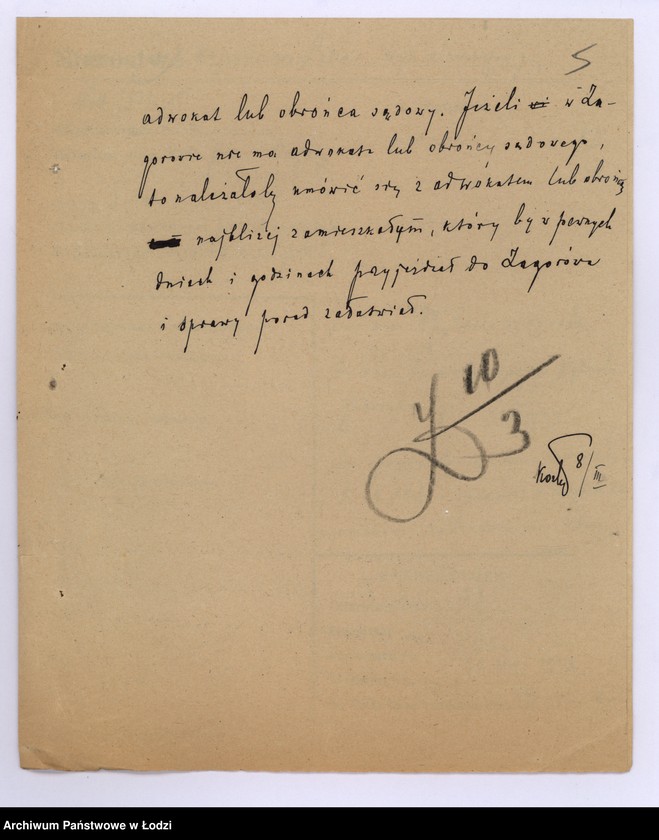 5
adwokat lub obrońca sądowy. Jeżeli w Za-
gorowie nie ma adwokata lub obrońcy sądowego,
to należałoby umówić się z adwokatem lub obrońcą
najbliżej zamieszkałym, który by w pewnych
dniach i godzinach przyjeżdżał do Zagórowa
i sprawy porad załatwiał.
10/3
8/III
Archiwum Państwowe w Łodzi